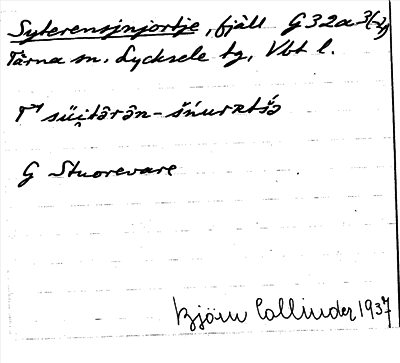 Syterensjnjortje, fjäll G32a3(-4)
Tärna sn. Lycksele tg, Vbt l.
G Stuorevare
Björn Collinder 1937